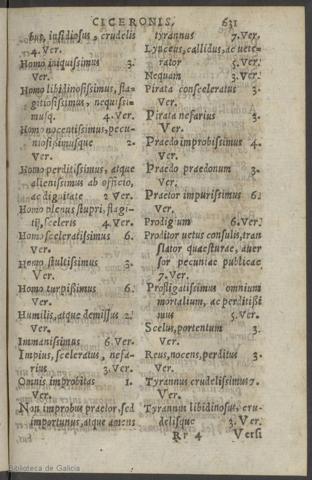 CICERONIS. 631
bus, insidiosus, crudelis
4. Ver.
Homo iniquissimus 3.
Ver.
Homo libidinosissimus, fla-
gitiosissimus, nequissi-
musq. 4. Ver.
Homo nocentissimus, pecu-
niosissimusque 2.
Ver.
Homo perditissimus, atque
alienissimus ab officio,
ac dignitate 2 Ver.
Homo plenus stupri, flagi-
tij, sceleris 4. Ver.
Homo sceleratissimus 6.
Ver.
Homo stultissimus 3.
Ver.
Homo turpissimus 6.
Ver.
Humilis, atque demissus 2.
Ver.
Immanissimus 6. Ver.
Impius, sceleratus, nefa-
rius 3. Ver.
Omnis improbitas 1.
Ver.
Non improbus praetor, sed
importunus, atque amens
tyrannus 7. Ver.
Lynceus, callidus, ac uete-
rator 5. Ver.
Nequam 3. Ver.
Pirata consceleratus 3.
Ver.
Pirata nefarius 3.
Ver.
Praedo improbissimus 4.
Ver.
Praedo praedonum 3.
Ver.
Praetor impurissimus 6.
Ver.
Prodigium 6. Ver.
Proditor uetus consulis, tran
slator quaesturae, auer
sor pecuniae publicae
7. Ver.
Profligatissimus omnium
mortalium, ac perditissi
mus 5. Ver.
Scelus, portentum 3.
Ver.
Reus, nocens, perditus 3.
Ver.
Tyrannus crudelissimus 7.
Ver.
Tyrannus libidinosus, cru-
delisque 3. Ver.
Rr 4 Versi
Biblioteca de Galicia